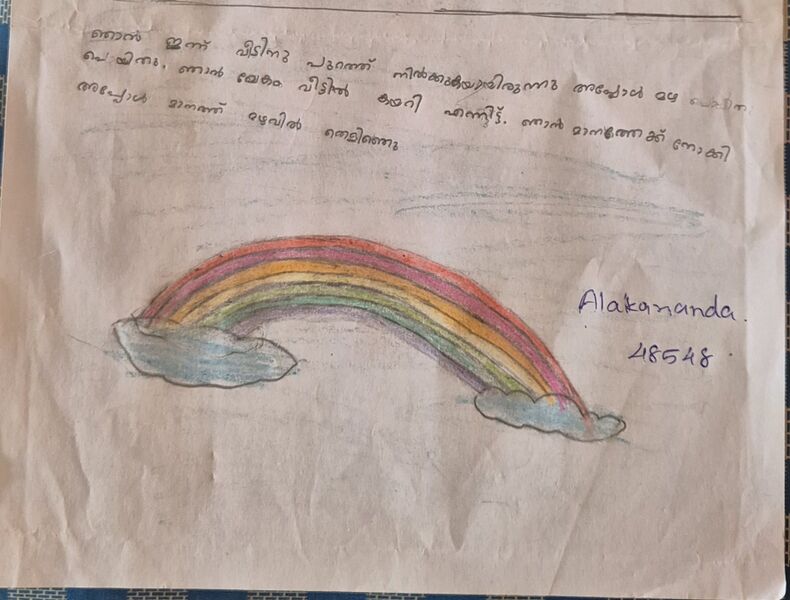 ഞാൻ ഇന്ന് വീടിനു പുറത്ത് നിൽക്കുകയായിരുന്നു അപ്പോൾ മഴ
പെയ്തു. ഞാൻ വേഗം വീട്ടിൽ കയറി എന്നിട്ട്. ഞാൻ മാനത്തേക്ക് നോക്കി
അപ്പോൾ മാനത്ത് മഴവിൽ തെളിഞ്ഞു
Alakananda.
48548